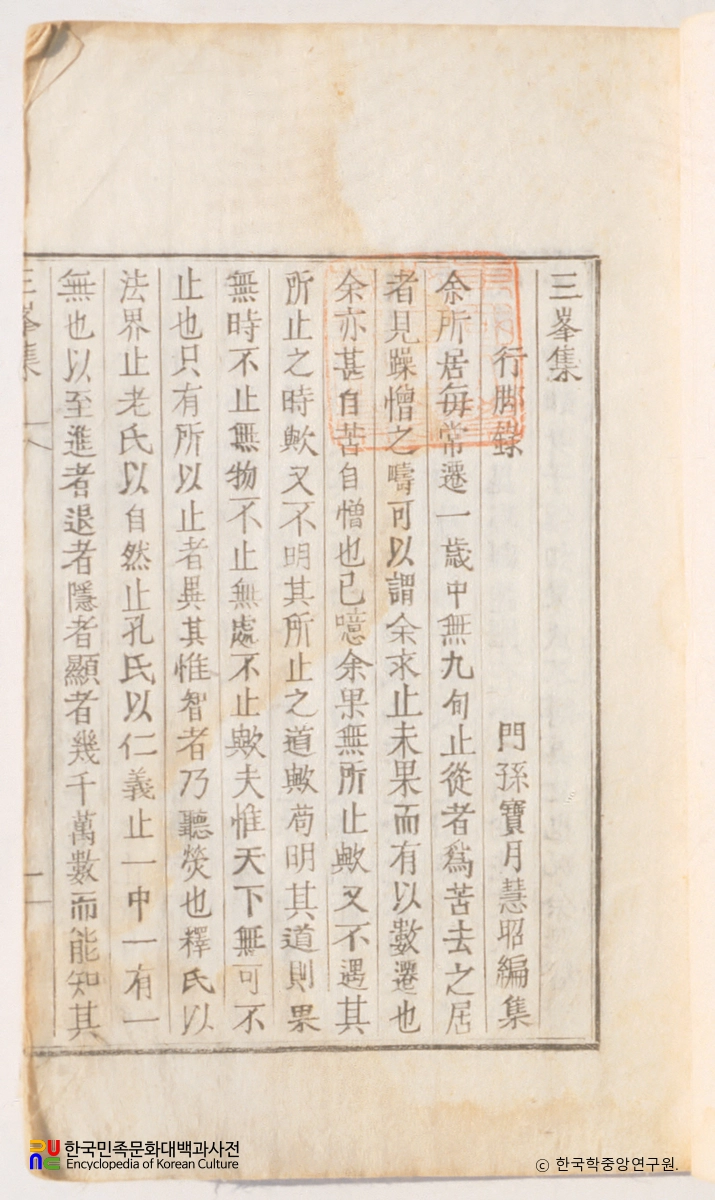 三峯集
行脚錄
門孫寶月慧昭編集
余所居每常遷一歲中無九旬止從者爲苦去之居
者見躁憎之疇可以謂余求止未果而有以數遷也
余亦甚自苦自憎也已噫余果無所止歟又不遇其
所止之時歟又不明其所止之道歟苟明其道則果
無時不止無物不止無處不止歟夫惟天下無可不
止也只有所以止者異其惟智者乃聽熒也釋氏以
法界止老氏以自然止孔氏以仁義止一中一有一
無也以至進者退者隱者顯者幾千萬數而能知其
三峯集
한국민족문화대백과사전
Encyclopedia of Korean Culture
© 한국학중앙연구원.